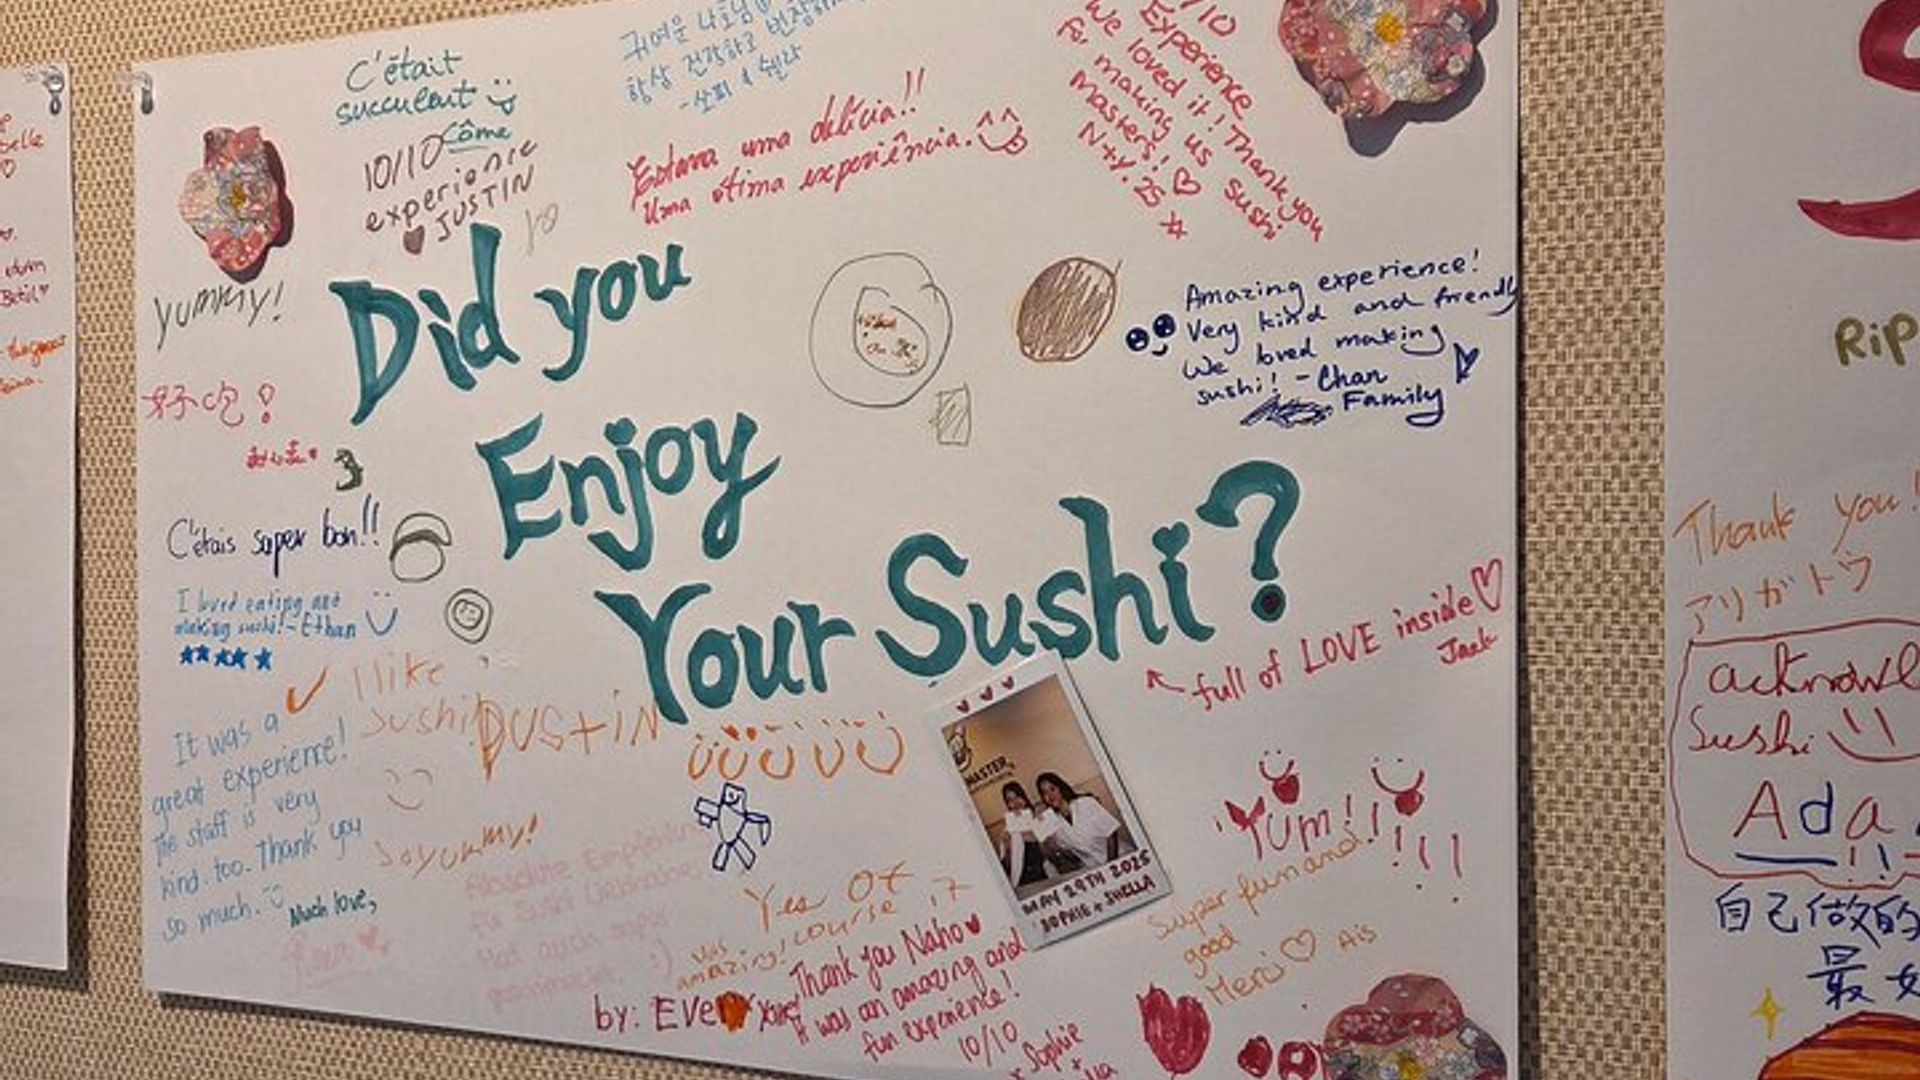 C'était
succulent
Côme
10/10
experience
JUSTIN
귀여운 나호님
항상 건강하고 번창하
-소피 & 쉘라
Estava uma delícia!!
Uma ótima experiência.
/10
Experience
We loved it! Thank you
for making us sushi
masters! ♡
N+Y. 25
YUMMY!
Did you
Enjoy
Your Sushi?
Amazing experience!
Very kind and friendly
We loved making
sushi! - Chan
Family
好吃!
C'étais super bon!!
I loved eating and
making sushi! - Ethan
★★★★★
I like
sushi!
DUStiN
← full of LOVE inside ♡
Jack
It was a
great experience!
The staff is very
kind too. Thank you
so much.
Much love,
So yummy!
Absolute Empfehlung
für Sushi Liebhaber
Hat auch super
:)
Yes Of
course it
was
amazing!
by: Ever
Thank you Naho ♥
It was an amazing and
fun experience!
10/10
Sophie
MASTER
MAY 29TH 2025
SOPHIE + SHELLA
Yum!!!!!
Super fun and
good
Merci ♡ Ais
RiP
Thank you!
アリガトウ
acknowl
Sushi
Ada
自己做的
最好